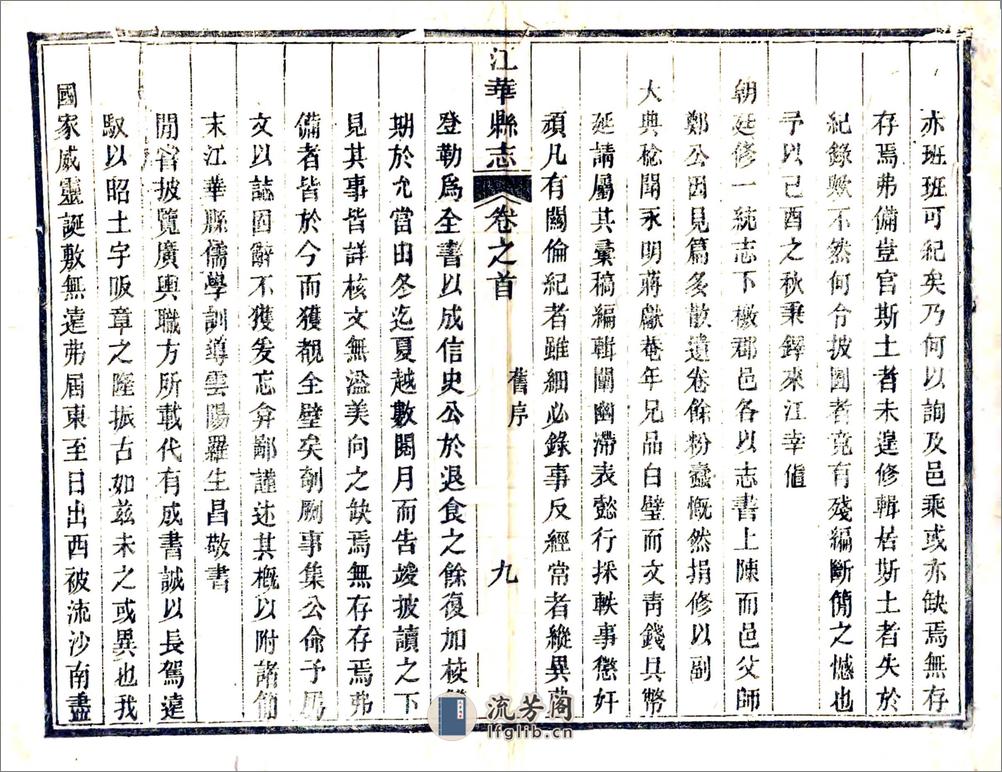 亦班班可紀矣乃何以詢及邑乘或亦缺焉無存
存焉弗備豈官斯土者未遑修輯居斯土者失於
紀錄歟不然何令披圖者竟有殘編斷簡之憾也
予以己酉之秋秉鐸來江幸值
朝廷修一統志下檄郡邑各以志書上陳而邑父師
鄭公因見篇多散遺卷餘粉蠹慨然捐修以副
大典稔聞永明蔣獻菴年兄品白璧而文青錢具幣
延請屬其彙稿編輯闡幽滯表懿行採軼事懲奸
頑凡有關倫紀者雖細必錄事反經常者縱異弗
江華縣志 卷之首 舊序 九
登勒爲全書以成信史公於退食之餘復加校
期於允當由冬迄夏越數閱月而告竣披讀之下
見其事皆詳核文無溢美向之缺焉無存存焉弗
備者皆於今而獲覩全璧矣剞劂事集公命予爲
文以誌固辭不獲爰忘弇鄙謹述其概以附諸簡
末江華縣儒學訓導雲陽羅生昌敬書
間嘗披覽廣輿職方所載代有成書誠以長駕遠
馭以昭土宇昄章之隆振古如兹未之或異也我
國家威靈誕敷無遠弗屆東至日出西被流沙南盡
流芳阁
lfglib.cn